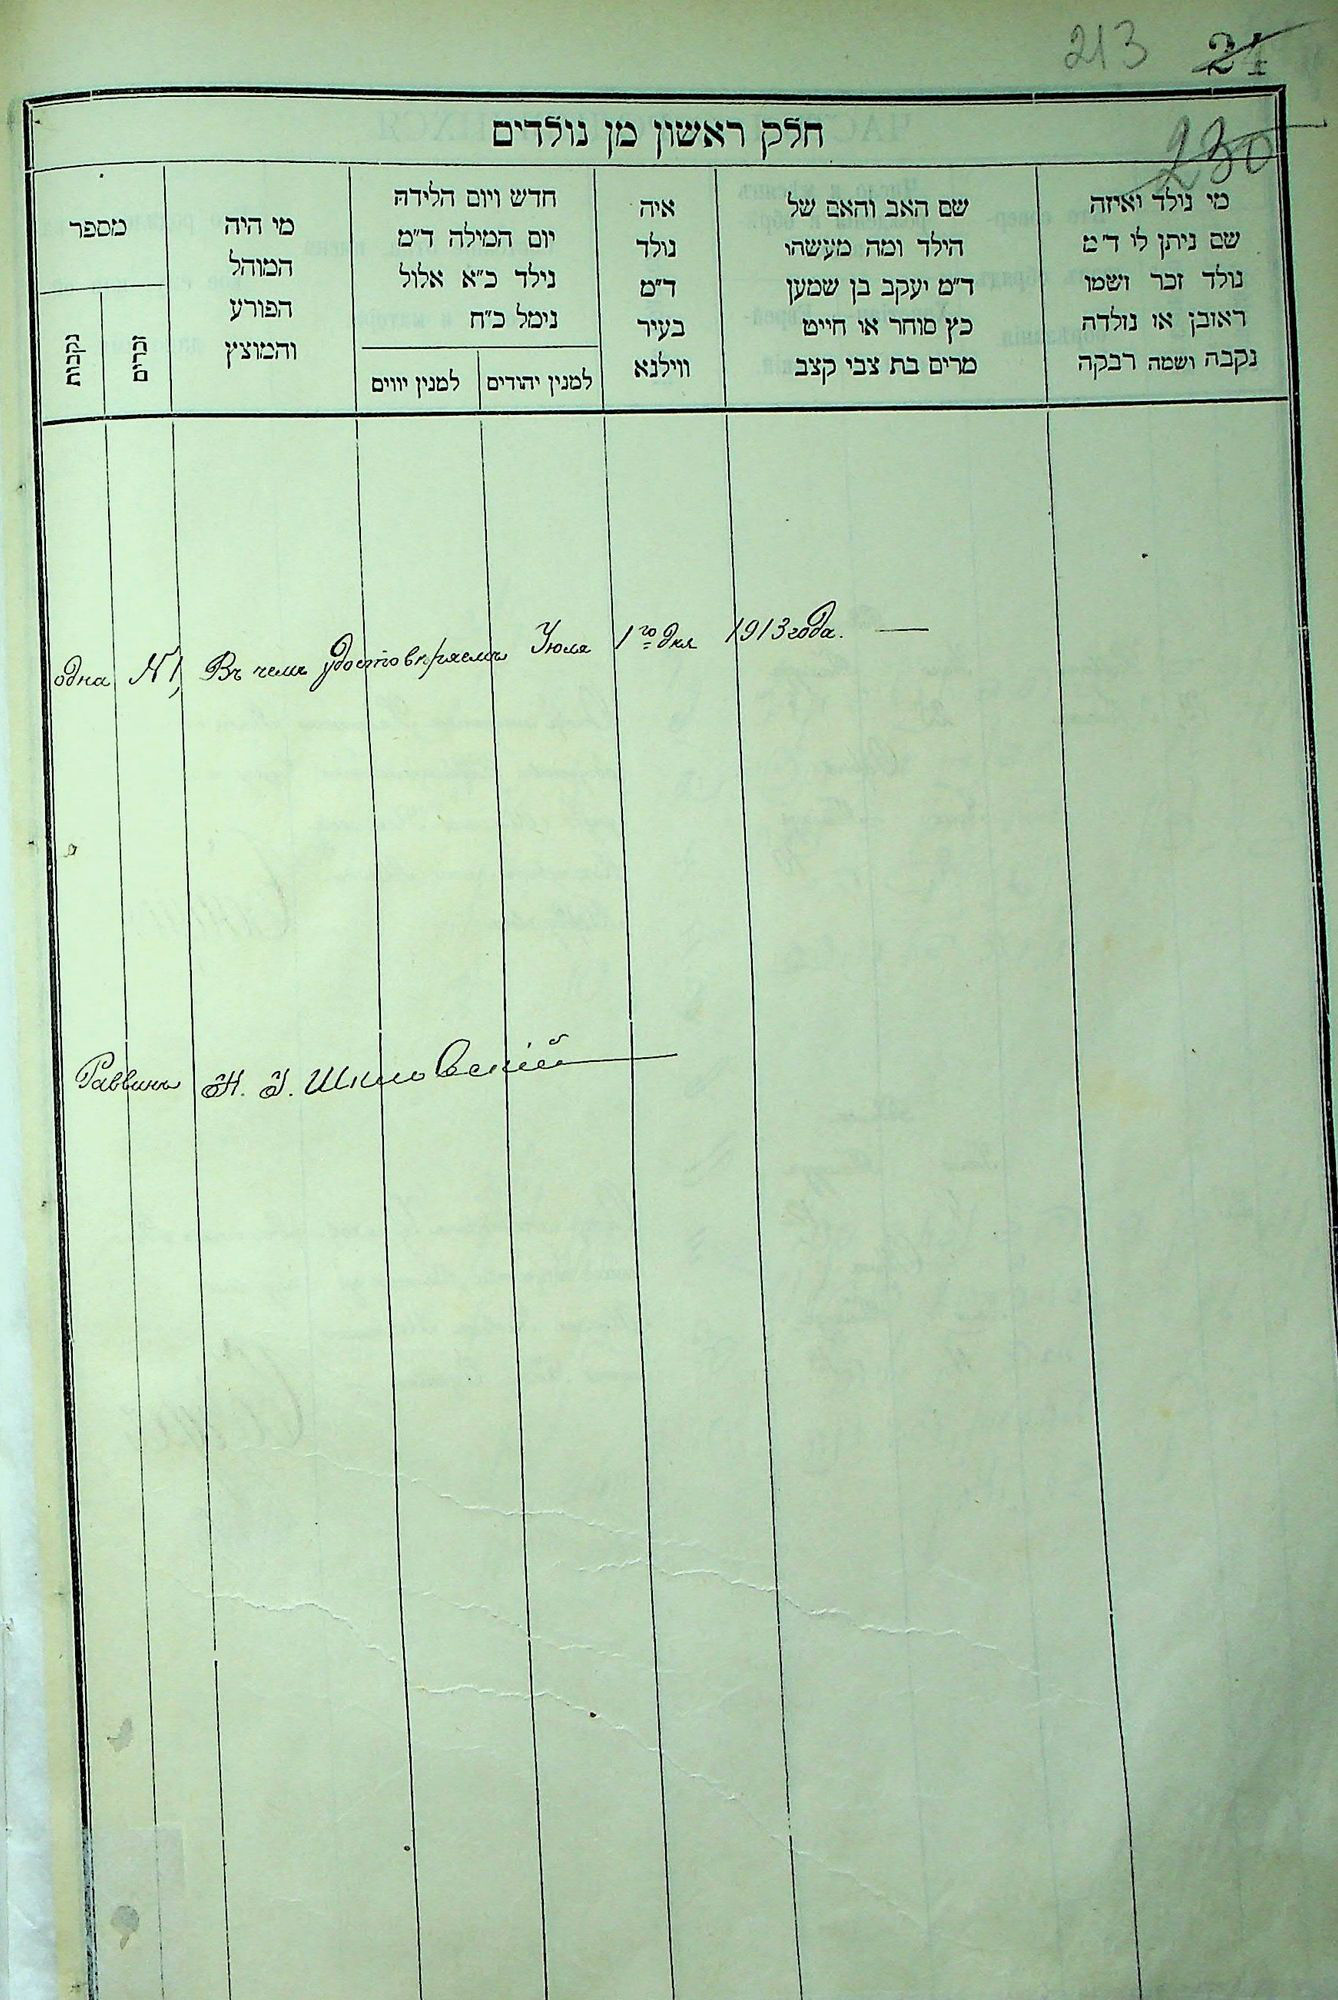 213 24
230
חלק ראשון מן נולדים
מי נולד ואיזה
שם ניתן לי ד״מ
נולד זכר ושמו
ראובן או נולדה
נקבה ושמה רבקה
שם האב והאם של
הילד ומה מעשהו
ד״מ יעקב בן שמען
כץ סוחר או חייט
מרים בת צבי קצב
איה
נולד
ד״מ
בעיר
ווילנא
חדש ויום הלידה
יום המילה ד״מ
נילד כ״א אלול
נימל כ״ח
למנין יהודים
למנין יווים
מי היה
המוהל
הפורע
והמוצץ
מספר
זכרים
נקבות
одна №1, Въ чемъ удостовѣряемъ Іюля 1го дня 1913 года. —
Раввинъ Н. І. Шкловскій